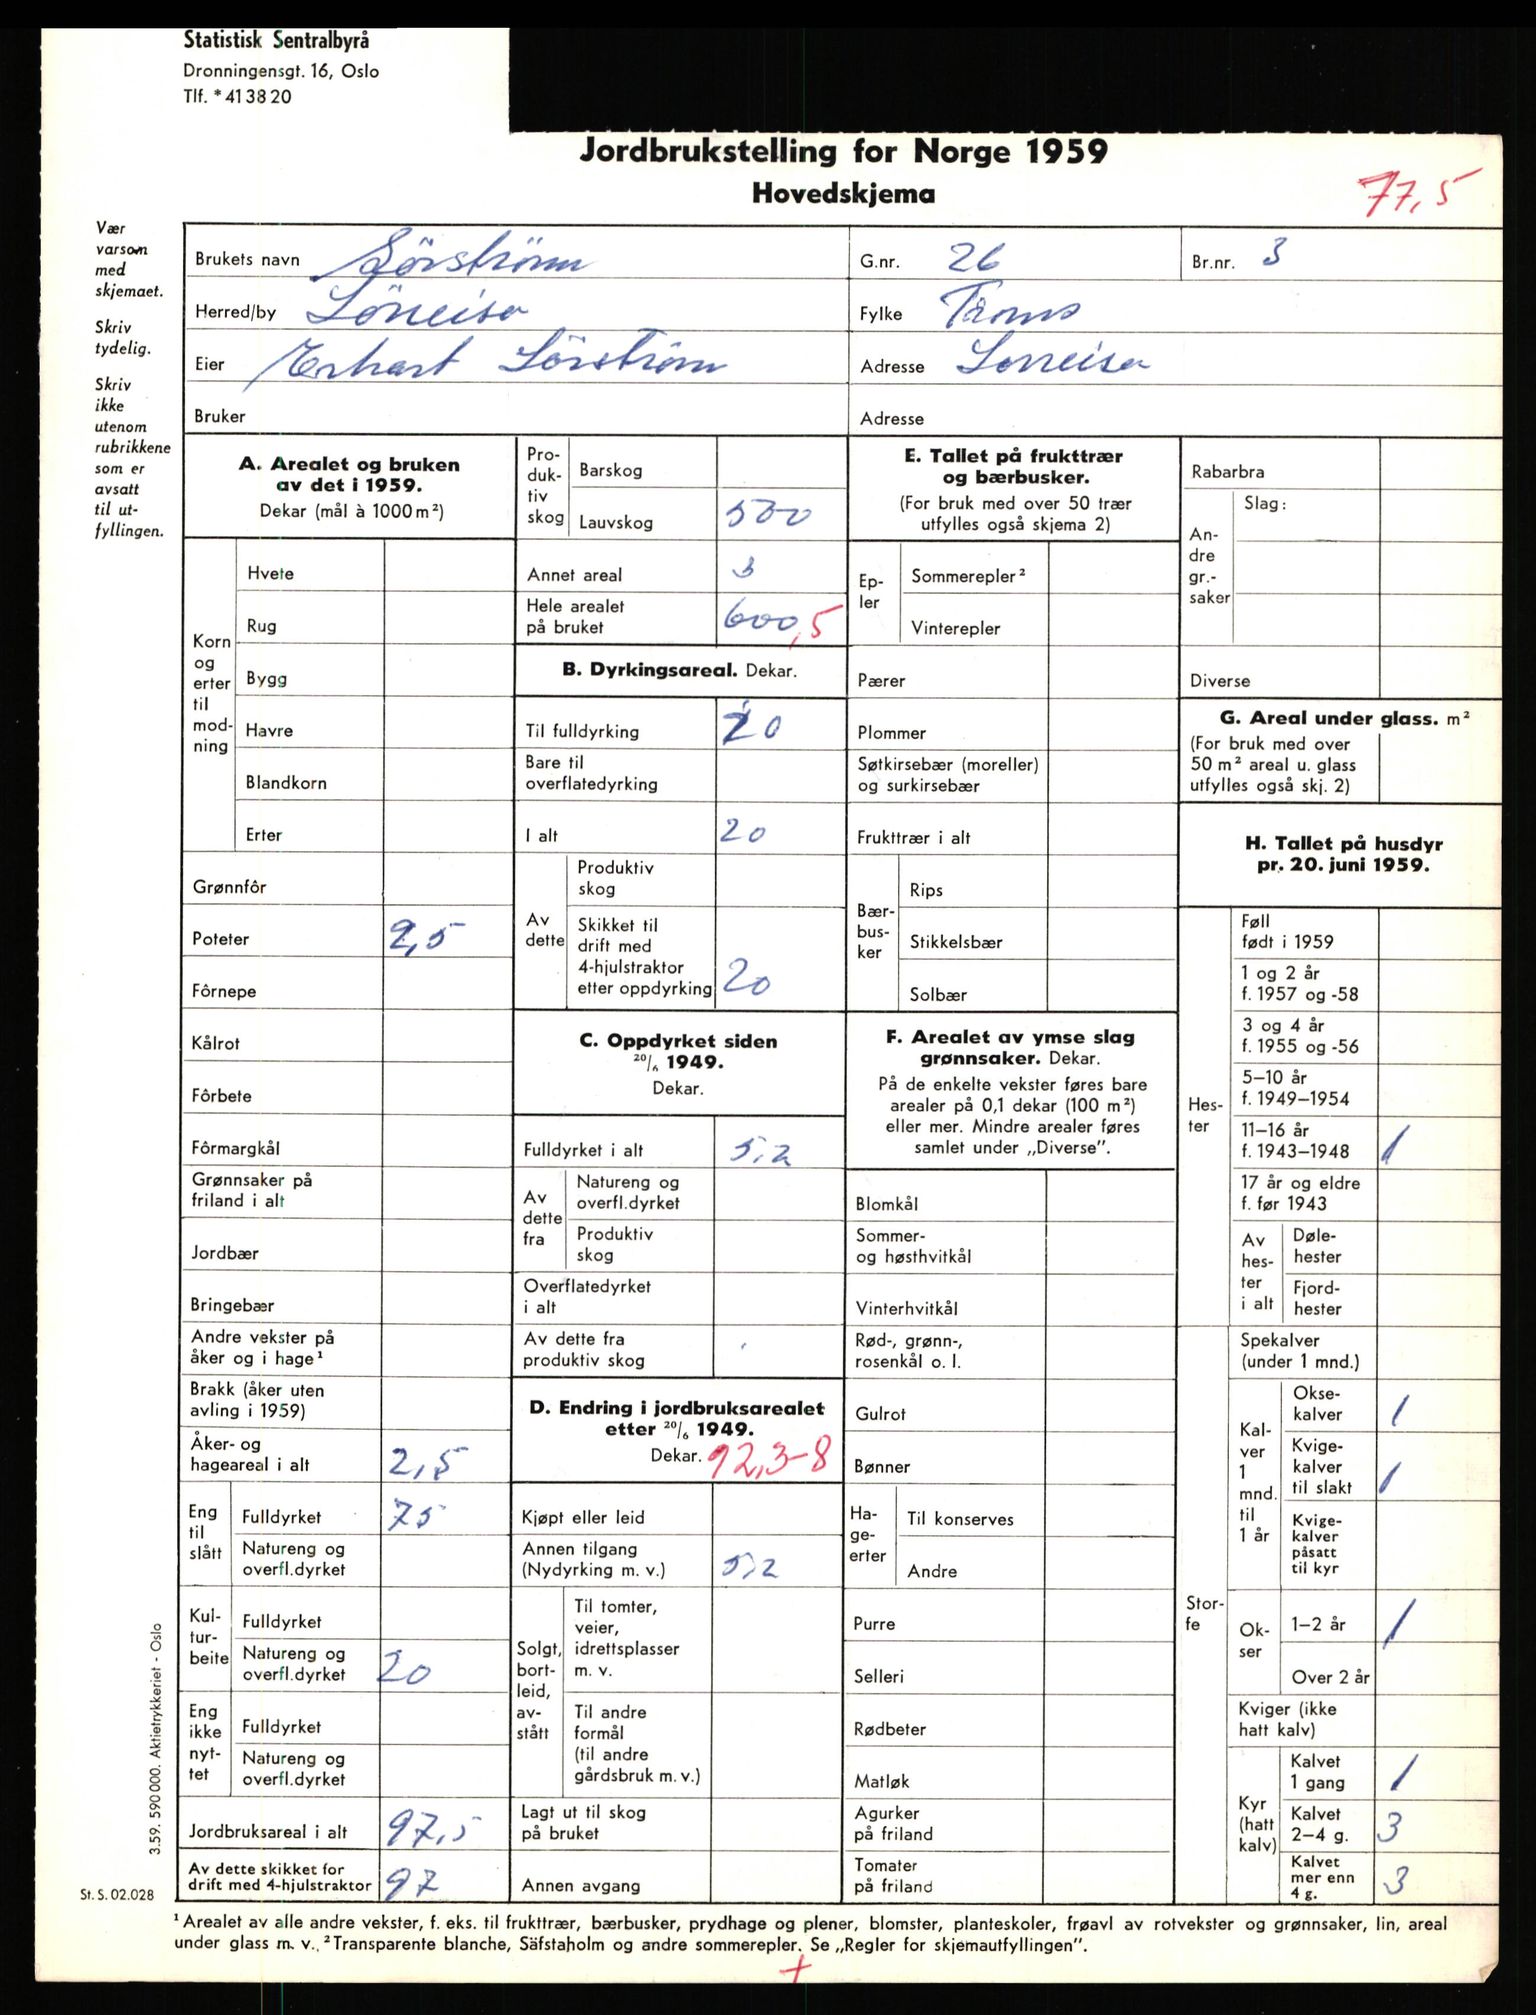 Statistisk Sentralbyrå
Dronningensgt. 16, Oslo
Tlf. * 41 38 20
Jordbrukstelling for Norge 1959
Hovedskjema
77,5
Vær
varsom
med
skjemaet.
Skriv
tydelig.
Skriv
ikke
utenom
rubrikkene
som er
avsatt
til ut-
fyllingen.
Brukets navn Sörström G.nr. 26 Br.nr. 3
Herred/by Fylke Troms
Eier Erhart Sörström Adresse
Bruker Adresse
A. Arealet og bruken
av det i 1959.
Dekar (mål à 1000 m²)
Korn
og
erter
til
mod-
ning
Hvete
Rug
Bygg
Havre
Blandkorn
Erter
Grønnfôr
Poteter 2,5
Fôrnepe
Kålrot
Fôrbete
Fôrmargkål
Grønnsaker på
friland i alt
Jordbær
Bringebær
Andre vekster på
åker og i hage¹
Brakk (åker uten
avling i 1959)
Åker- og
hageareal i alt 2,5
Eng
til
slått
Fulldyrket 75
Natureng og
overfl.dyrket
Kul-
tur-
beite
Fulldyrket
Natureng og
overfl.dyrket 20
Eng
ikke
nyt-
tet
Fulldyrket
Natureng og
overfl.dyrket
Jordbruksareal i alt 97,5
Av dette skikket for
drift med 4-hjulstraktor 97
Pro-
duk-
tiv
skog
Barskog
Lauvskog 500
Annet areal 3
Hele arealet
på bruket 600,5
B. Dyrkingsareal. Dekar.
Til fulldyrking 20
Bare til
overflatedyrking
I alt 20
Av
dette
Produktiv
skog
Skikket til
drift med
4-hjulstraktor
etter oppdyrking 20
C. Oppdyrket siden
20/6 1949.
Dekar.
Fulldyrket i alt 5,2
Av
dette
fra
Natureng og
overfl.dyrket
Produktiv
skog
Overflatedyrket
i alt
Av dette fra
produktiv skog
D. Endring i jordbruksarealet
etter 20/6 1949.
Dekar. 92,3-8
Kjøpt eller leid
Annen tilgang
(Nydyrking m. v.) 5,2
Solgt,
bort-
leid,
av-
stått
Til tomter,
veier,
idrettsplasser
m. v.
Til andre
formål
(til andre
gårdsbruk m. v.)
Lagt ut til skog
på bruket
Annen avgang
E. Tallet på frukttrær
og bærbusker.
(For bruk med over 50 trær
utfylles også skjema 2)
Ep-
ler
Sommerepler²
Vinterepler
Pærer
Plommer
Søtkirsebær (moreller)
og surkirsebær
Frukttrær i alt
Bær-
bus-
ker
Rips
Stikkelsbær
Solbær
F. Arealet av ymse slag
grønnsaker. Dekar.
På de enkelte vekster føres bare
arealer på 0,1 dekar (100 m²)
eller mer. Mindre arealer føres
samlet under „Diverse”.
Blomkål
Sommer-
og høsthvitkål
Vinterhvitkål
Rød-, grønn-,
rosenkål o. l.
Gulrot
Bønner
Ha-
ge-
erter
Til konserves
Andre
Purre
Selleri
Rødbeter
Matløk
Agurker
på friland
Tomater
på friland
Rabarbra
An-
dre
gr.-
saker
Slag:
Diverse
G. Areal under glass. m²
(For bruk med over
50 m² areal u. glass
utfylles også skj. 2)
H. Tallet på husdyr
pr. 20. juni 1959.
Hes-
ter
Føll
født i 1959
1 og 2 år
f. 1957 og -58
3 og 4 år
f. 1955 og -56
5–10 år
f. 1949–1954
11–16 år
f. 1943–1948 1
17 år og eldre
f. før 1943
Av
hes-
ter
i alt
Døle-
hester
Fjord-
hester
Stor-
fe
Spekalver
(under 1 mnd.)
Kal-
ver
1
mnd.
til
1 år
Okse-
kalver 1
Kvige-
kalver
til slakt 1
Kvige-
kalver
påsatt
til kyr
Ok-
ser
1–2 år 1
Over 2 år
Kviger (ikke
hatt kalv)
Kyr
(hatt
kalv)
Kalvet
1 gang 1
Kalvet
2–4 g. 3
Kalvet
mer enn
4 g. 3
3.59. 590 000. Aktietrykkeriet - Oslo
St. S. 02.028
¹ Arealet av alle andre vekster, f. eks. til frukttrær, bærbusker, prydhage og plener, blomster, planteskoler, frøavl av rotvekster og grønnsaker, lin, areal
under glass m. v. ² Transparente blanche, Säfstaholm og andre sommerepler. Se „Regler for skjemautfyllingen”.
+